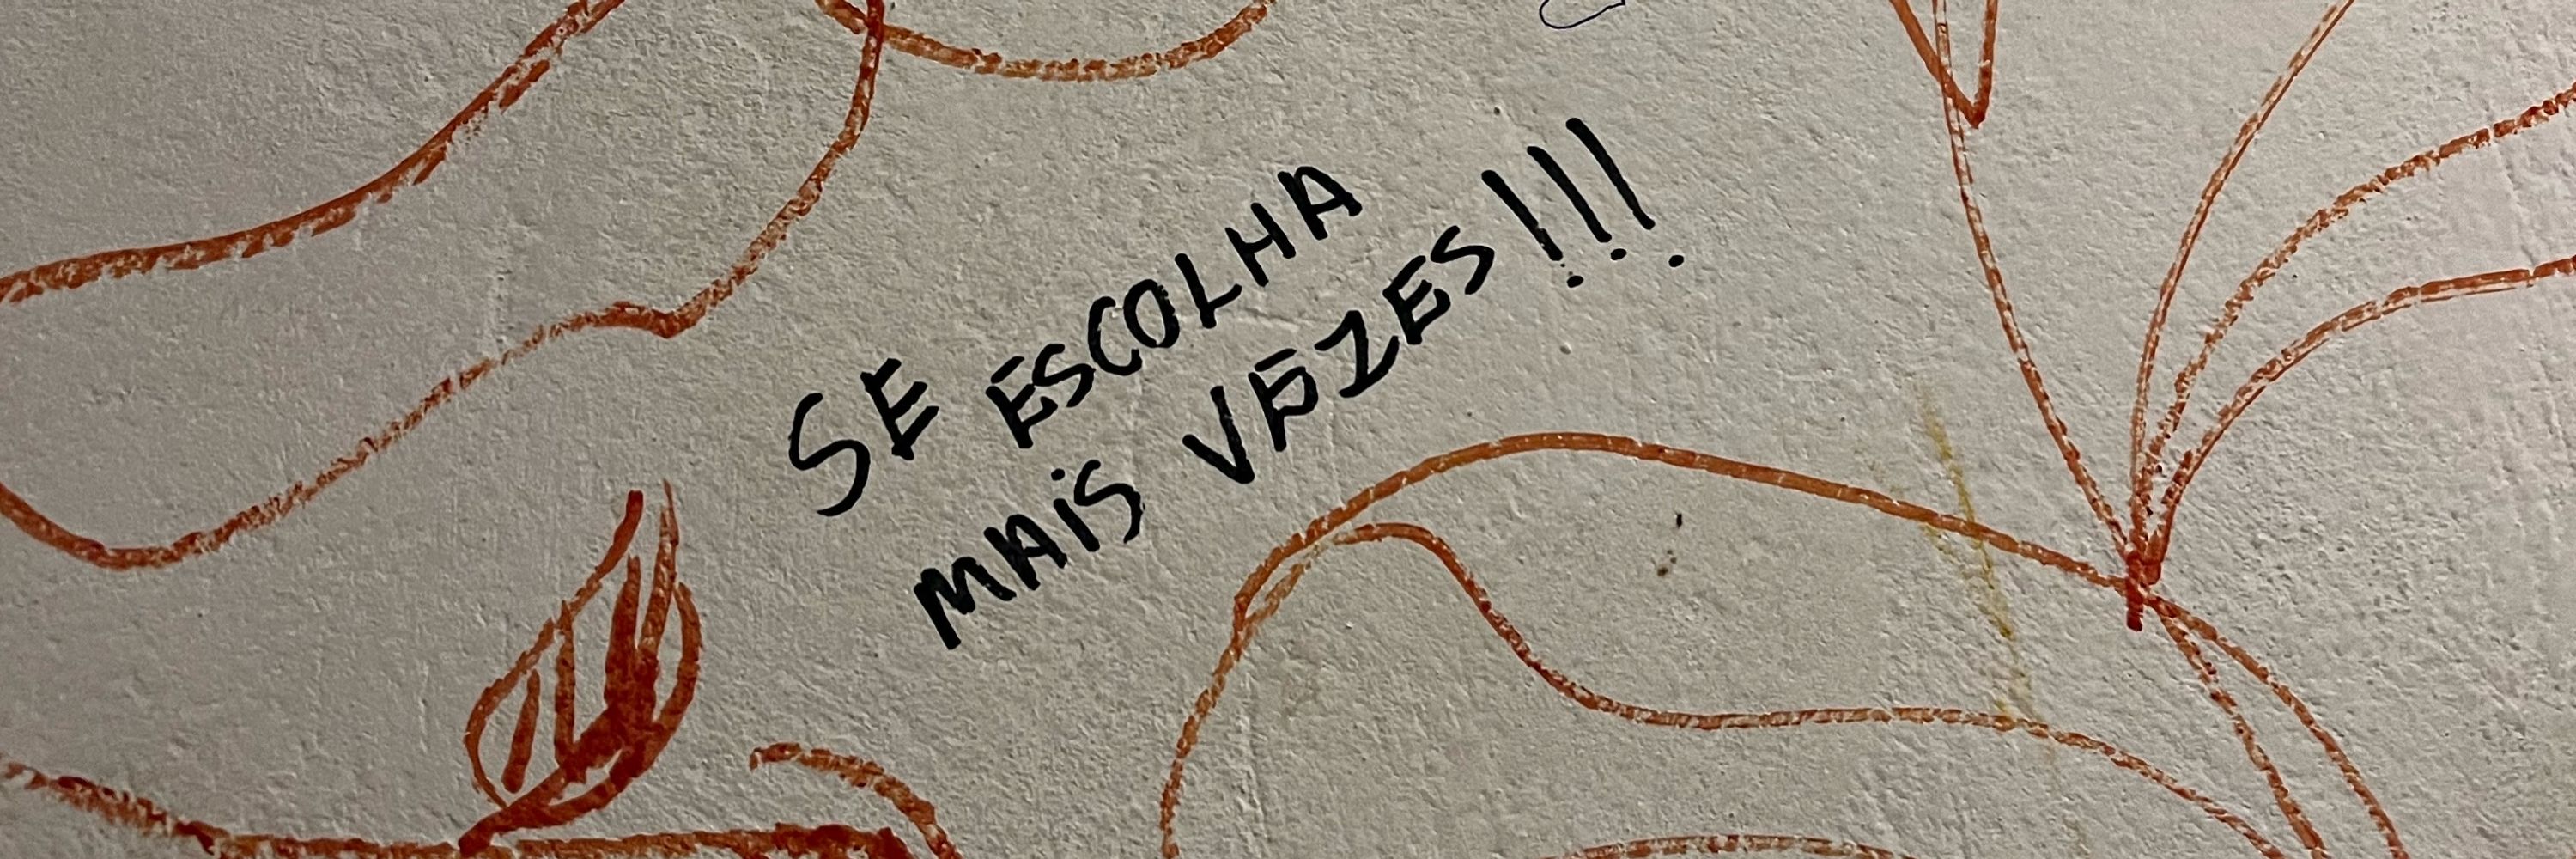 SE ESCOLHA
MAIS VEZES!!!